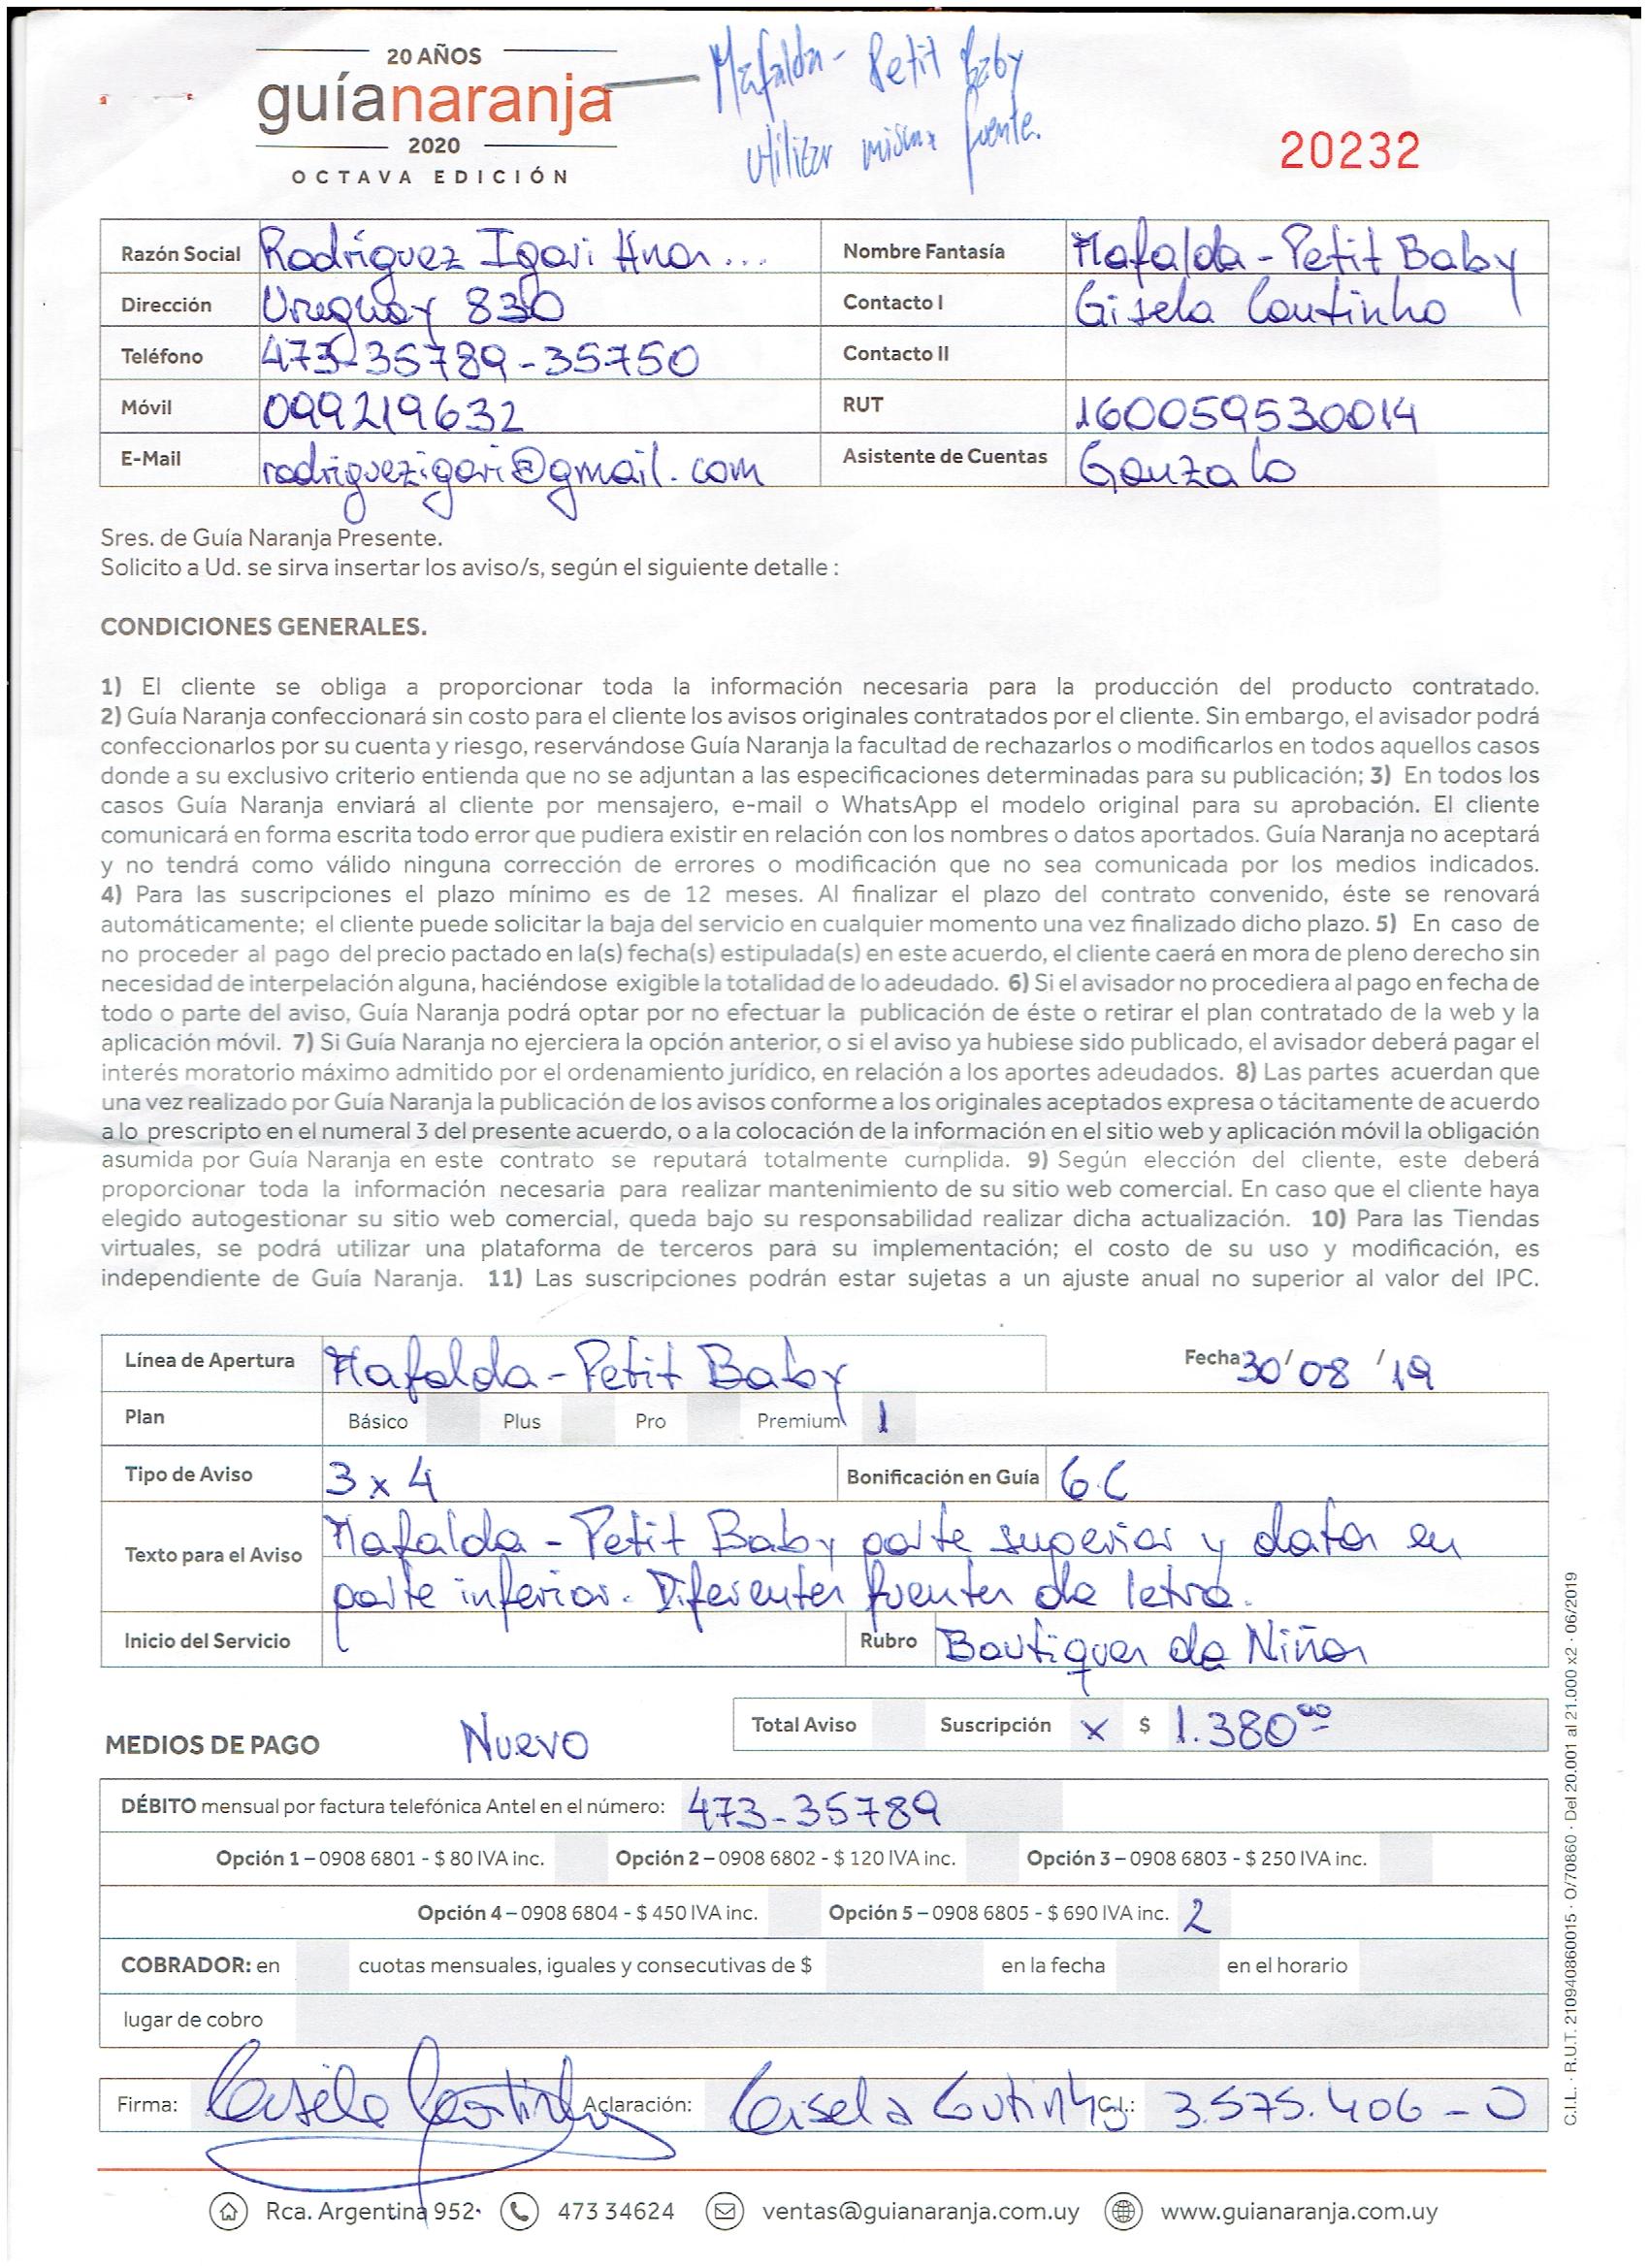 20 AÑOS
guíanaranja
2020
OCTAVA EDICIÓN
Mafalda - Petit Baby
utilizar misma fuente.
20232
Razón Social Rodríguez Igari Hnos... Nombre Fantasía Mafalda - Petit Baby
Dirección Uruguay 830 Contacto I Gisela Coutinho
Teléfono 473-35789-35750 Contacto II
Móvil 099219632 RUT 160059530014
E-Mail rodriguezigari@gmail.com Asistente de Cuentas Gonzalo
Sres. de Guía Naranja Presente.
Solicito a Ud. se sirva insertar los aviso/s, según el siguiente detalle :
CONDICIONES GENERALES.
1) El cliente se obliga a proporcionar toda la información necesaria para la producción del producto contratado.
2) Guía Naranja confeccionará sin costo para el cliente los avisos originales contratados por el cliente. Sin embargo, el avisador podrá
confeccionarlos por su cuenta y riesgo, reservándose Guía Naranja la facultad de rechazarlos o modificarlos en todos aquellos casos
donde a su exclusivo criterio entienda que no se adjuntan a las especificaciones determinadas para su publicación; 3) En todos los
casos Guía Naranja enviará al cliente por mensajero, e-mail o WhatsApp el modelo original para su aprobación. El cliente
comunicará en forma escrita todo error que pudiera existir en relación con los nombres o datos aportados. Guía Naranja no aceptará
y no tendrá como válido ninguna corrección de errores o modificación que no sea comunicada por los medios indicados.
4) Para las suscripciones el plazo mínimo es de 12 meses. Al finalizar el plazo del contrato convenido, éste se renovará
automáticamente; el cliente puede solicitar la baja del servicio en cualquier momento una vez finalizado dicho plazo. 5) En caso de
no proceder al pago del precio pactado en la(s) fecha(s) estipulada(s) en este acuerdo, el cliente caerá en mora de pleno derecho sin
necesidad de interpelación alguna, haciéndose exigible la totalidad de lo adeudado. 6) Si el avisador no procediera al pago en fecha de
todo o parte del aviso, Guía Naranja podrá optar por no efectuar la publicación de éste o retirar el plan contratado de la web y la
aplicación móvil. 7) Si Guía Naranja no ejerciera la opción anterior, o si el aviso ya hubiese sido publicado, el avisador deberá pagar el
interés moratorio máximo admitido por el ordenamiento jurídico, en relación a los aportes adeudados. 8) Las partes acuerdan que
una vez realizado por Guía Naranja la publicación de los avisos conforme a los originales aceptados expresa o tácitamente de acuerdo
a lo prescripto en el numeral 3 del presente acuerdo, o a la colocación de la información en el sitio web y aplicación móvil la obligación
asumida por Guía Naranja en este contrato se reputará totalmente cumplida. 9) Según elección del cliente, este deberá
proporcionar toda la información necesaria para realizar mantenimiento de su sitio web comercial. En caso que el cliente haya
elegido autogestionar su sitio web comercial, queda bajo su responsabilidad realizar dicha actualización. 10) Para las Tiendas
virtuales, se podrá utilizar una plataforma de terceros para su implementación; el costo de su uso y modificación, es
independiente de Guía Naranja. 11) Las suscripciones podrán estar sujetas a un ajuste anual no superior al valor del IPC.
Línea de Apertura Mafalda - Petit Baby Fecha 30/08/19
Plan Básico Plus Pro Premium 1
Tipo de Aviso 3 x 4 Bonificación en Guía 6.C
Texto para el Aviso Mafalda - Petit Baby parte superior y datos en
parte inferior. Diferentes fuentes de letra.
Inicio del Servicio Rubro Boutiques de Niños
MEDIOS DE PAGO Nuevo Total Aviso Suscripción x $ 1.380⁰⁰
DÉBITO mensual por factura telefónica Antel en el número: 473-35789
Opción 1 – 0908 6801 - $ 80 IVA inc. Opción 2 – 0908 6802 - $ 120 IVA inc. Opción 3 – 0908 6803 - $ 250 IVA inc.
Opción 4 – 0908 6804 - $ 450 IVA inc. Opción 5 – 0908 6805 - $ 690 IVA inc. 2
COBRADOR: en cuotas mensuales, iguales y consecutivas de $ en la fecha en el horario
lugar de cobro
Firma: Gisela Coutinho Aclaración: Gisela Coutinho C.I.: 3.575.406-0
Rca. Argentina 952 473 34624 ventas@guianaranja.com.uy www.guianaranja.com.uy
C.I.L. · R.U.T. 210940860015 · O/70860 · Del 20.001 al 21.000 x2 · 06/2019